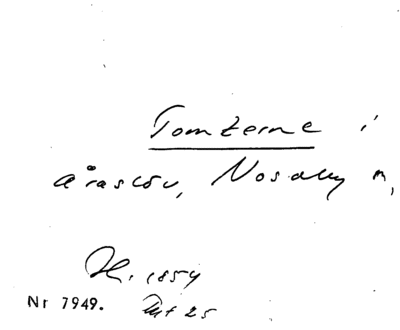 Tomterne i
Åraslöv, Nosaby n,
H. 1854
Nr 7949. Avt 25